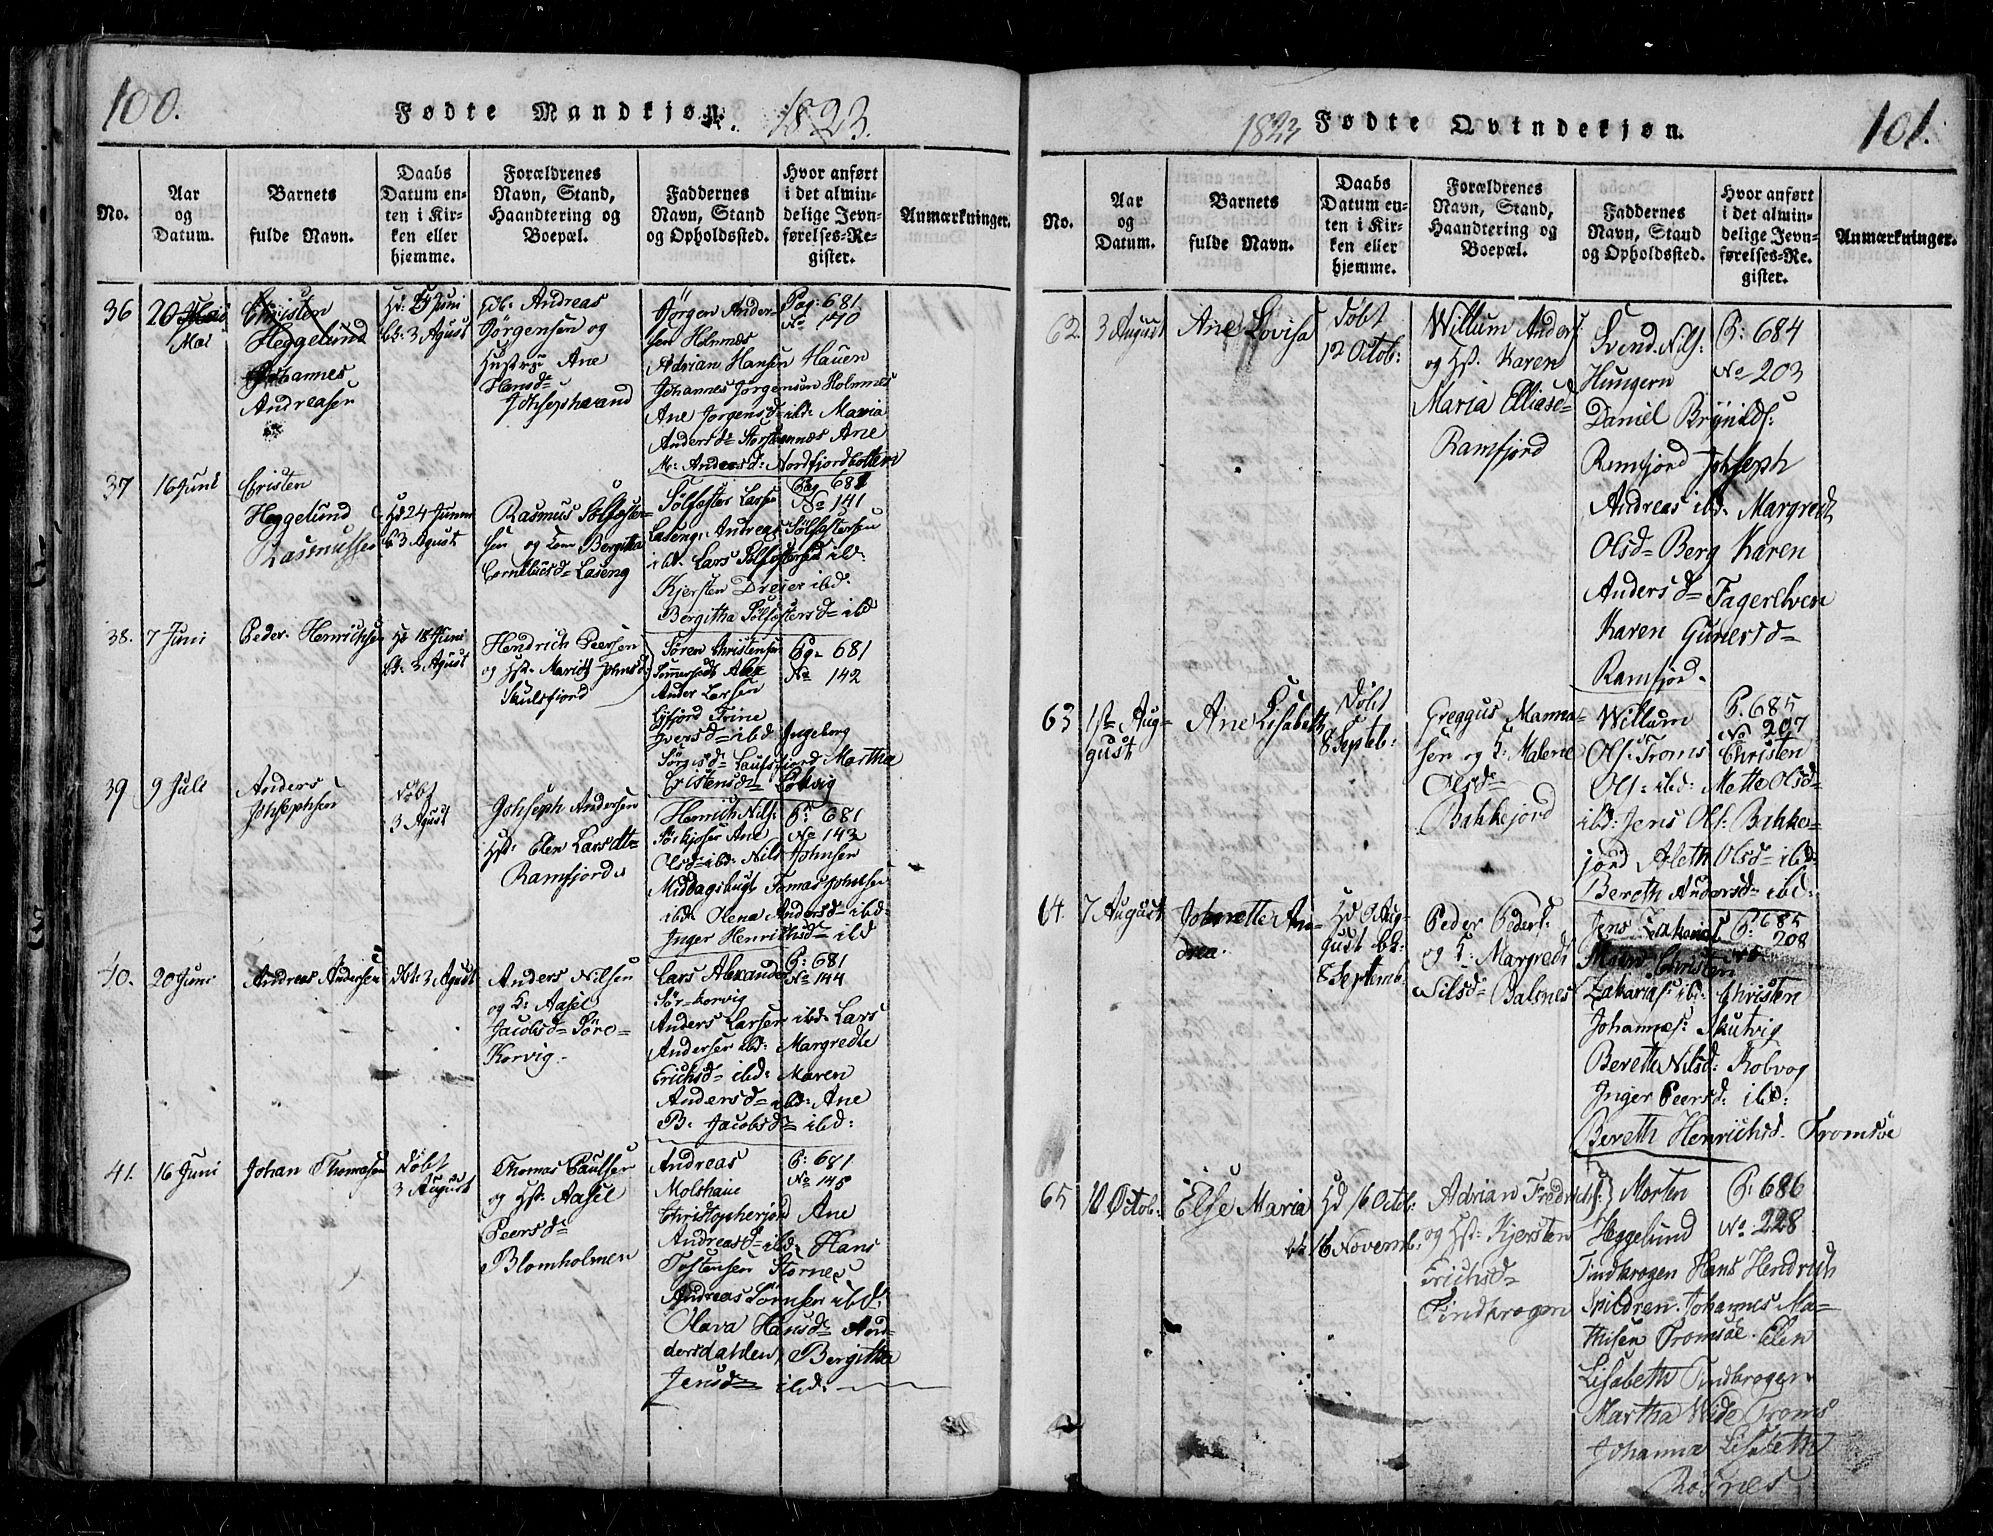 100.
Fødte Mandkjøn.
1823.
No.
Aar
og
Datum.
Barnets
fulde Navn.
Daabs
Datum en-
ten i Kir-
ken eller
hjemme.
Forældrenes
Navn, Stand,
Haandtering og
Boepæl.
Faddernes
Navn, Stand
og Opholdssted.
Hvor anført
i det almin-
delige Jevn-
førelses-Re-
gister.
Anmærkninger.
36
20
Mai
Christen
Heggelund
Johannes
Andreasen
Juni
3 Agust
Andreas
Jørgensen og
Hustrue Ane
Hansd=
Johsephavand
Jørgen Ander-
sen Holmnæs
Adrian Hansen Hauen
Johannes Jørgensen Holmnes
Ane Jørgensd= ibd: Maria
Andersd= Storstennæs Ane
M: Andersd: Nordfjordbotten
Pag: 681
No 140
37
16 Juni
Cristen
Heggelund
Rasmussen
Hd 24 Junii
b 3 Agust
Rasmus Sölfæster-
sen og Kone Bergitha
Corneliusd= Laseng
Sölfæster Larse
Laseng, Andreas Sölfæstersen
ibd: Lars Sölfæstersen ibd:
Kjersten Dreier ibd:
Bergitha Sölfæstersd= ibd
Pag 681
No 141
38.
7 Juni
Peder Henrichsen
Hd 18 Juni
bk: 3 Agust
Hendrich Peersen
og Hst: Marith Johnsd:
Skulsfjord
Sören Christensen
Alex
Ander Larsen
Trine
Iversd= ibd Ingeborg
Martha
Cristensd=
Pg= 681
No 142
39
9 Juli
Anders
Johsephsen
Döbt
3 Agust
Johseph Andersen
Hst: Elen Larsdt=
Ramfjord
Henrich Nils:
Ane
Olsd= ibd: Nils Johnsen
Middagsbugt Tomas Johnsen
ibd: Olena Andersd= ibd=
Inger Henrichsd= ibd
P: 681
No 143
40.
20 Juni
Andreas Andersen
Dbt: 3 Agust
Anders Nilsen
og H: Aasel
Jacobsd= Söre-
Korvig.
Lars Alexander
Sör-korvig
Anders Larsen ibd: Lars
Andersen ibd: Margrethe
Erichsd= ibd: Maren
Andersd= ibd: Ane
B. Jacobsd= ibd:
P: 681
No 144
41.
16 Juni
Johan Thomasen
Döbt
3 August
Thomas Paulsen
og Hst: Aasel
Peersd=
Blomholmen
Andreas
Christopherjord Ane
Andreasd= ibd: Hans
Tostensen Stornes
Andreas Sörnsen ibd:
Olava Hansd= And-
dersdahlen, Bergitha
Jensd= ibd:
P: 681
No 145
1823
Fødte Qvindekjøn.
101.
No.
Aar
og
Datum.
Barnets
fulde Navn.
Daabs
Datum en-
ten i Kir-
ken eller
hjemme.
Forældrenes
Navn, Stand,
Haandtering og
Boepæl.
Faddernes
Navn, Stand
og Opholdssted.
Hvor anført
i det almin-
delige Jevn-
førelses-Re-
gister.
Anmærkninger.
62.
3 August
Ane Lovisa
Döbt
12 Octob:
Willum Anders:
og Hst: Karen
Maria Elliasd=
Ramfjord
Svend Nils:
Hungern
Daniel Brynilds:
Ramfjord Johseph
Andreas ibd. Margreth
Olsd= Berg Karen
Andersd= Fagerelven
Karen Gunersd=
Ramfjord.
P: 684
No 203
63
1ste Aug-
gust
Ane Lisabeth
Döbt
8 Septeb:
Greggus Manna-
sen og H: Malene
Olsd=
Bakkejord
Willum
Ols: Troms Christen
Ols: ibd: Mette Olsd=
ibd: Jens Ols: Bakke-
jord Aleth Olsd= ibd:
Bereth Andersd= ibd:
P. 685
No 207
64.
7 August
Johnette An-
drea.
Hd Aug-
gust bk:
8 Septemb:
Peder Peders:
og H: Margreth
Nilsd= Balsnes
Jens Zakarias
Christen
Zakarias: ibd: Christen
Johannes: Skutvig
Bereth Nilsd: Kobvog
Inger Peersd: ibd:
Bereth Henrichsd. Tromsøe
P: 685
208
65
10 Octob:
Else Maria
Hd 16 Octob:
bk 16 Novemb:
Adrian Fredrichs:
og Hst: Kjersten
Erichsd=
Tindkrogen
Morten
Heggelund
Tindkrogen Hans Hendrich
Spildren. Johannes Ma-
thisen Tromsöe. Elen
Lisabeth Tindkrogen
Martha Wide Troms
Johanna Lisabeth
Rösnes
P: 686
No 228